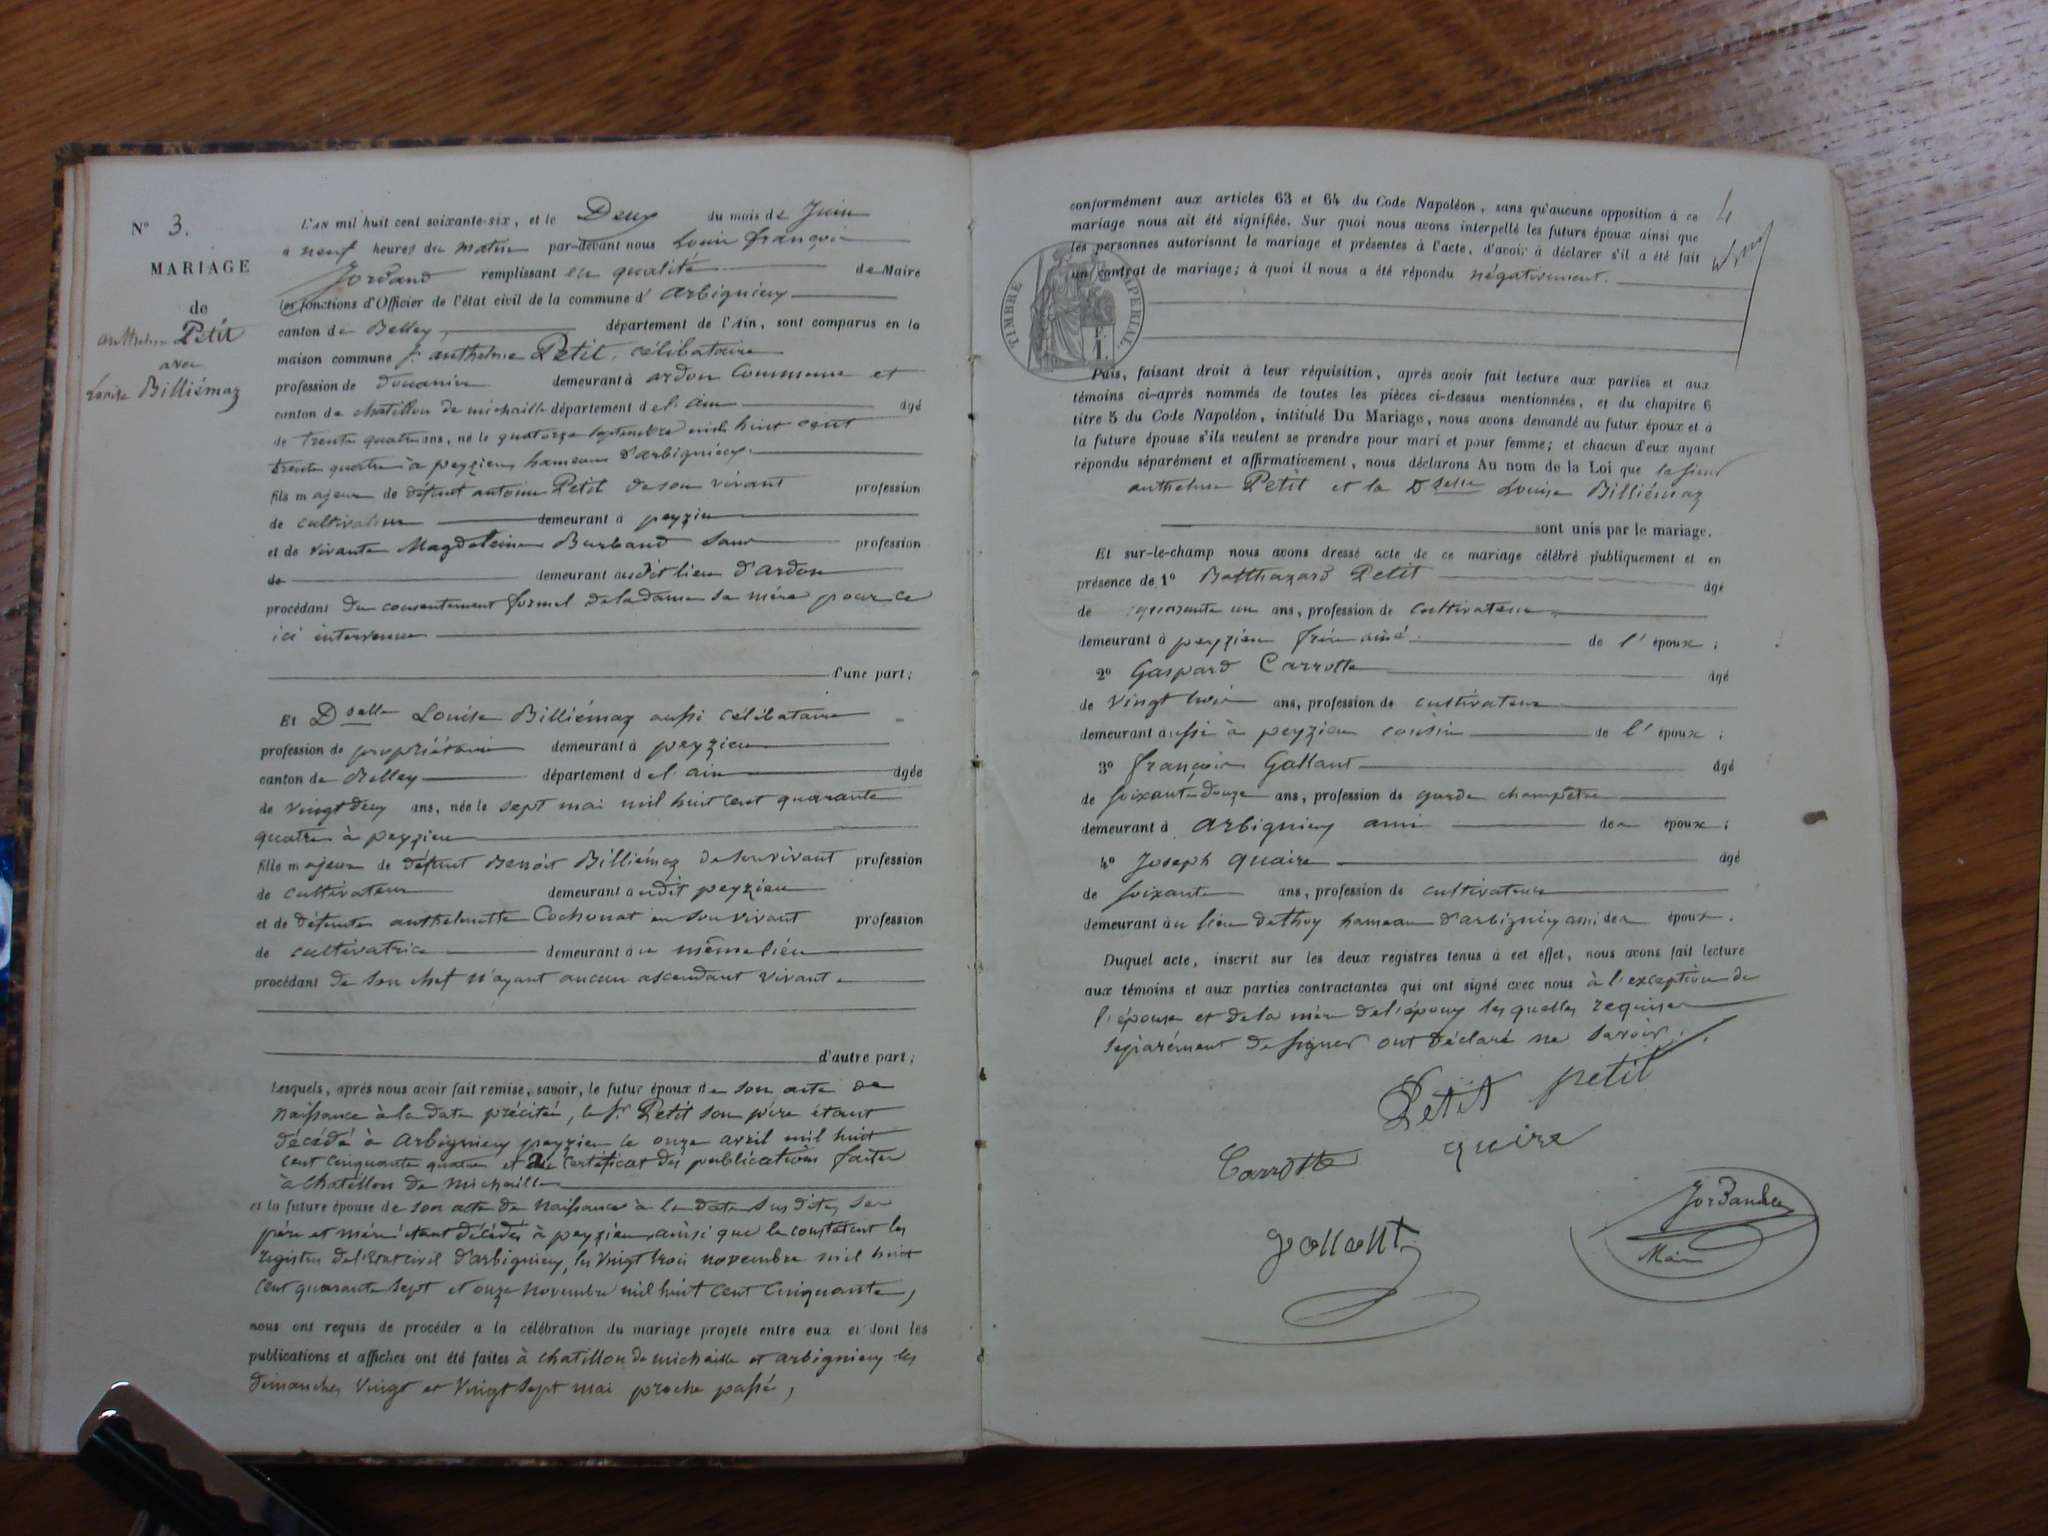 N° 3.
MARIAGE
de
anthelme Petit
avec
Louise Billiémaz
L'AN mil huit cent soixante-six, et le Deux du mois de Juin
a neuf heures du matin par-devant nous Louis françois
Jordand remplissant en qualité de Maire
les fonctions d'Officier de l'état civil de la commune d' arbignieu
canton de Belley, département de l'Ain, sont comparus en la
maison commune Sr anthelme Petit, célibataire
profession de douanier demeurant à ardon Commune et
canton de chatillon de michaille département de l'ain âgé
de trente quatre ans, né le quatorze septembre mil huit cent
trente quatre à peyzieu hameau d'arbignieu
fils majeur de défunt antoine Petit de son vivant profession
de cultivateur demeurant à peyzieu
et de vivante Magdeleine Burbaud sans profession
de demeurant audit lieu d'ardon
procédant du consentement formel de la dame sa mère pour ce
ici intervenue
d'une part;
Et Dselle Louise Billiémaz aussi célibataire
profession de propriétaire demeurant à peyzieu
canton de Belley département de l'ain âgée
de vingt deux ans, née le sept mai mil huit cent quarante
quatre à peyzieu
fille majeure de défunt Benoit Billiémaz de son vivant profession
de cultivateur demeurant audit peyzieu
et de défunte anthelmette Cochonat en son vivant profession
de cultivatrice demeurant au même lieu
procédant de son chef n'ayant aucun ascendant vivant
d'autre part;
Lesquels, après nous avoir fait remise, savoir, le futur époux de son acte de
naissance à la date précitée, le Sr Petit son père étant
décédé à arbignieu peyzieu le onze avril mil huit
cent cinquante quatre et du certificat des publications faites
à chatillon de michaille
et la future épouse de son acte de naissance à la date sus dite, ses
père et mère étant décédés à peyzieu ainsi que le constatent les
registres de l'état civil d'arbignieu, les vingt trois novembre mil huit
cent quarante sept et onze novembre mil huit cent cinquante,
nous ont requis de procéder à la célébration du mariage projeté entre eux et dont les
publications et affiches ont été faites à chatillon de michaille et arbignieu les
dimanches vingt et vingt sept mai proche passé,
4
conformément aux articles 63 et 64 du Code Napoléon, sans qu'aucune opposition à ce
mariage nous ait été signifiée. Sur quoi nous avons interpellé les futurs époux ainsi que
les personnes autorisant le mariage et présentes à l'acte, d'avoir à déclarer s'il a été fait
un contrat de mariage; à quoi il nous a été répondu négativement.
TIMBRE IMPERIAL
Puis, faisant droit à leur réquisition, après avoir fait lecture aux parties et aux
témoins ci-après nommés de toutes les pièces ci-dessus mentionnées, et du chapitre 6
titre 5 du Code Napoléon, intitulé Du Mariage, nous avons demandé au futur époux et à
la future épouse s'ils veulent se prendre pour mari et pour femme; et chacun d'eux ayant
répondu séparément et affirmativement, nous déclarons Au nom de la Loi que le sieur
anthelme Petit et la Dselle Louise Billiémaz
sont unis par le mariage.
Et sur-le-champ nous avons dressé acte de ce mariage célébré publiquement et en
présence de 1° Balthazard Petit âgé
de quarante un ans, profession de cultivateur
demeurant à peyzieu frère aîné de l'époux;
2° Gaspard Carrotte âgé
de vingt trois ans, profession de cultivateur
demeurant aussi à peyzieu cousin de l'époux;
3° françois Gallant âgé
de soixante douze ans, profession de garde champêtre
demeurant à arbignieu ami des époux;
4° Joseph quaire âgé
de soixante ans, profession de cultivateur
demeurant au lieu de thoy hameau d'arbignieu ami des époux.
Duquel acte, inscrit sur les deux registres tenus à cet effet, nous avons fait lecture
aux témoins et aux parties contractantes qui ont signé avec nous à l'exception de
l'épouse et de la mère de l'époux lesquelles requises
séparément de signer ont déclaré ne savoir.
Petit petit
Carrotte quire
gallant
Jordand
Maire